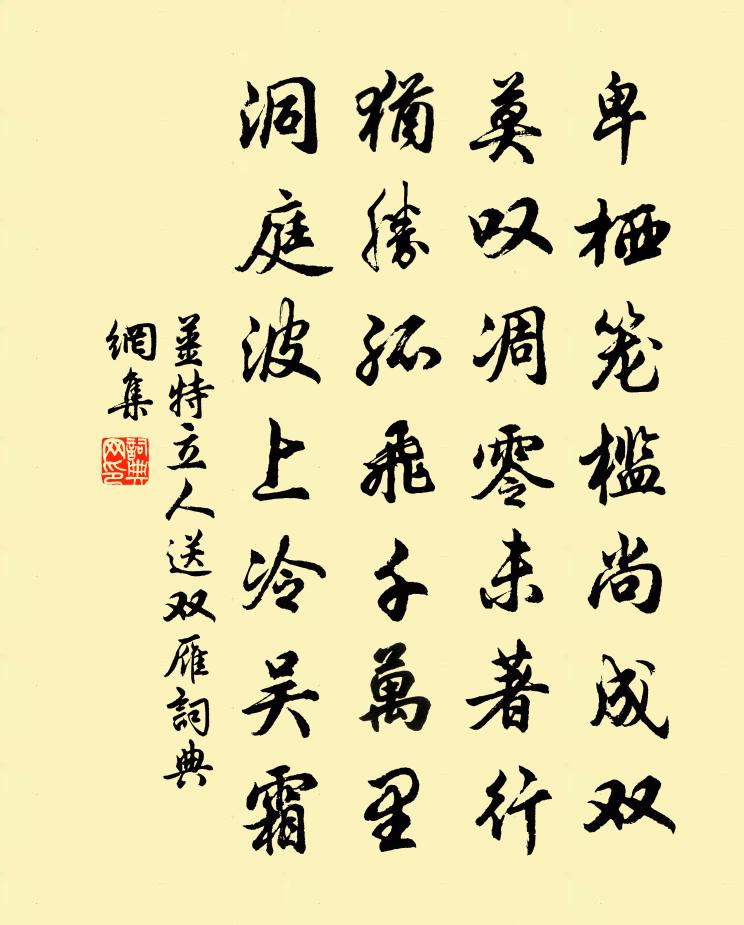 卑栖笼槛尚成双
莫叹凋零未著行
猶勝孤飛千萬里
洞庭波上冷吴霜
薑特立人送双雁詞典
網集
詞典网印